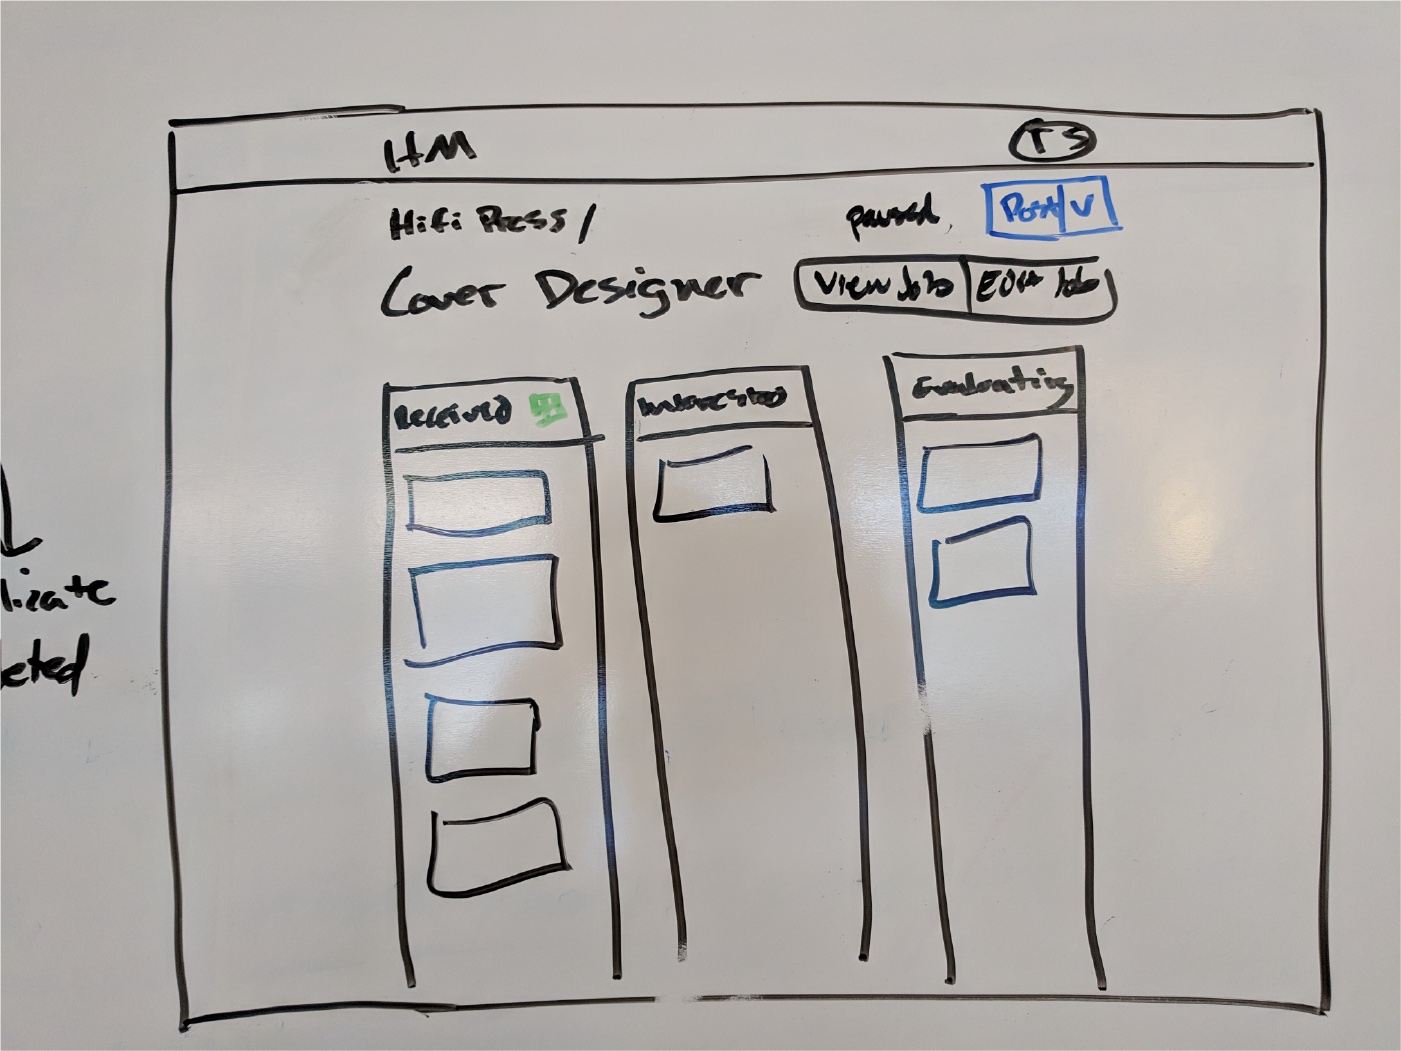 HM
TS
Hifi Press/
paused
Post V
Cover Designer
View Job
Edit Job
Received
Interested
Evaluating
licate
eted